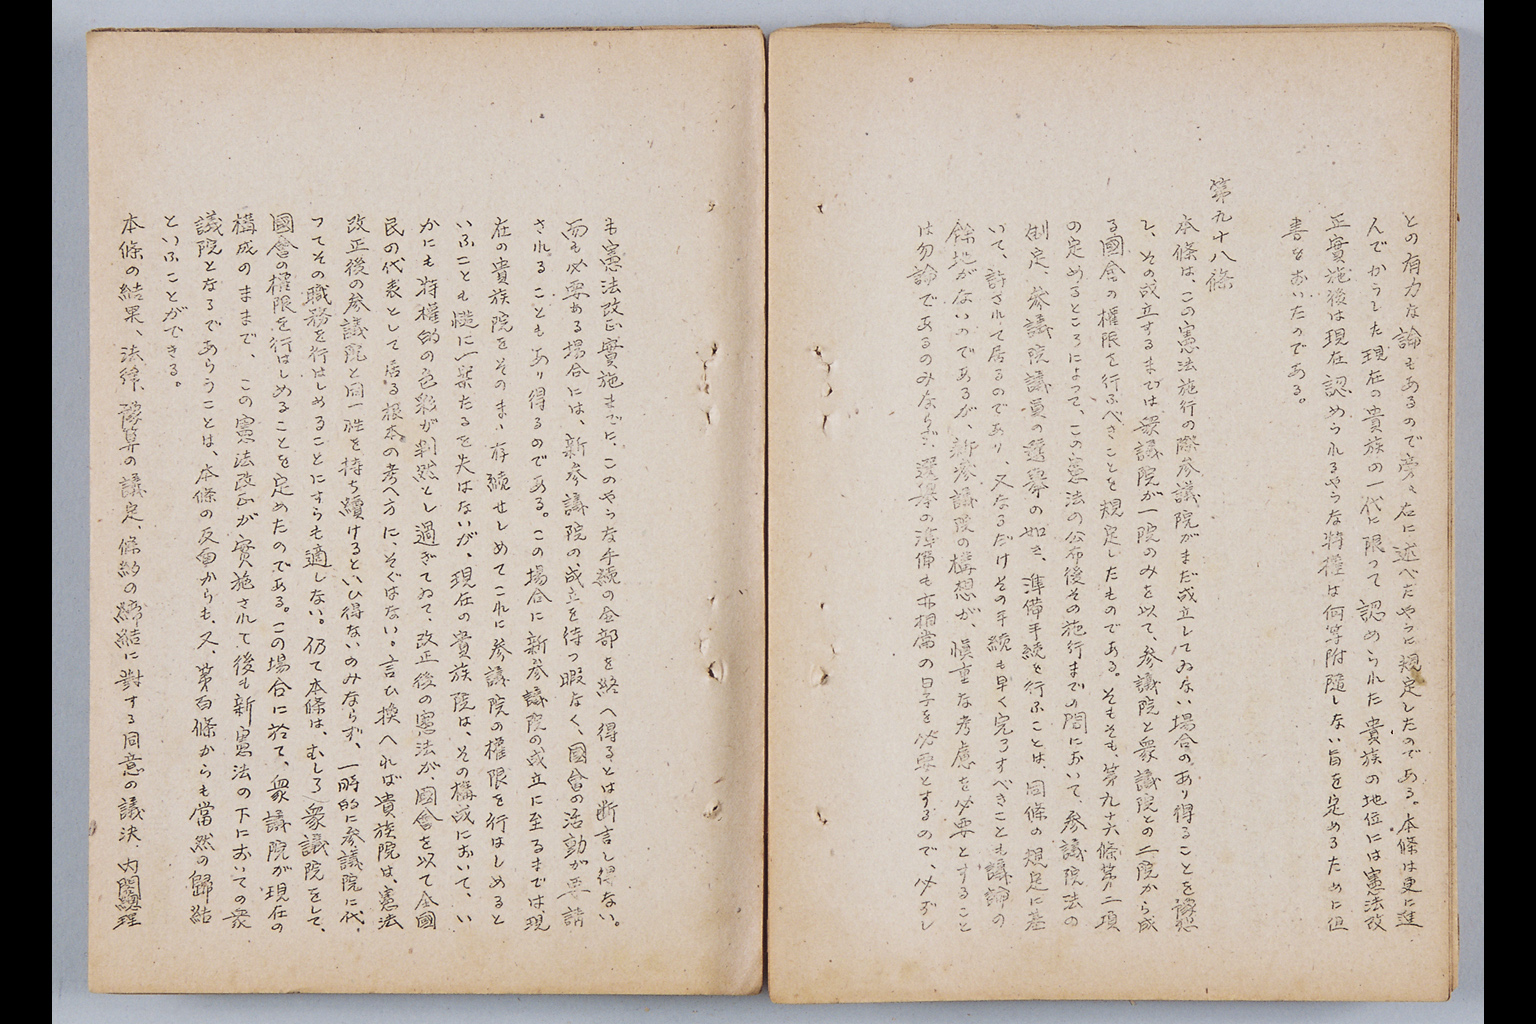 との有力な論もあるので旁々右に述べたやうに規定したのである。本條は更に進
んでかうした現在の貴族の一代に限つて認められた貴族の地位には憲法改
正實施後は現在認められるやうな特權は何等附隨しない旨を定めるために但
書をおいたのである。
第九十八條
本條は、この憲法施行の際參議院がまだ成立してゐない場合のあり得ることを豫想
し、その成立するまでは衆議院が一院のみを以て、參議院と衆議院との二院から成
る國會の權限を行ふべきことを規定したものである。そもそも、第九十六條第二項
の定めるところによつて、この憲法の公布後その施行までの間において、參議院法の
制定、參議院議員の選擧の如き、準備手続を行ふことは同條の規定に基
いて、許されて居るのであり、又なるだけその手続も早く完了すべきことも議論の
餘地がないのであるが、新參議院の構想が、愼重な考慮を必要とすること
は勿論であるのみならず、選擧の準備も亦相當の日子を必要とするので、必ずし
も憲法改正實施までに、このやうな手続の全部を終へ得るとは断言し得ない。
而も必要ある場合には、新參議院の成立を待つ暇なく、國會の活動が要請
されることもあり得るのである。この場合に新參議院の成立に至るまでは現
在の貴族院をそのまゝ存続せしめてこれに參議院の權限を行はしめると
いふことも慥に一案たるを失はないが、現在の貴族院は、その構成において、い
かにも特權的の色彩が判然とし過ぎてゐて、改正後の憲法が、國會を以て全國
民の代表として居る根本の考へ方に、そぐはない。言ひ換へれば貴族院は、憲法
改正後の參議院と同一性を持ち續けるといひ得ないのみならず、一時的に參議院に代
つてその職務を行はしめることにすらも適しない。仍て本條は、むしろ衆議院をして、
國會の權限を行はしめることを定めたのである。この場合に於て、衆議院が現在の
構成のままで、この憲法改正が實施されて後も新憲法の下においての衆
議院となるであらうことは、本條の反面からも、又、第百條からも當然の歸結
といふことができる。
本條の結果、法律、豫算の議定、條約の締結に對する同意の議決 内閣總理